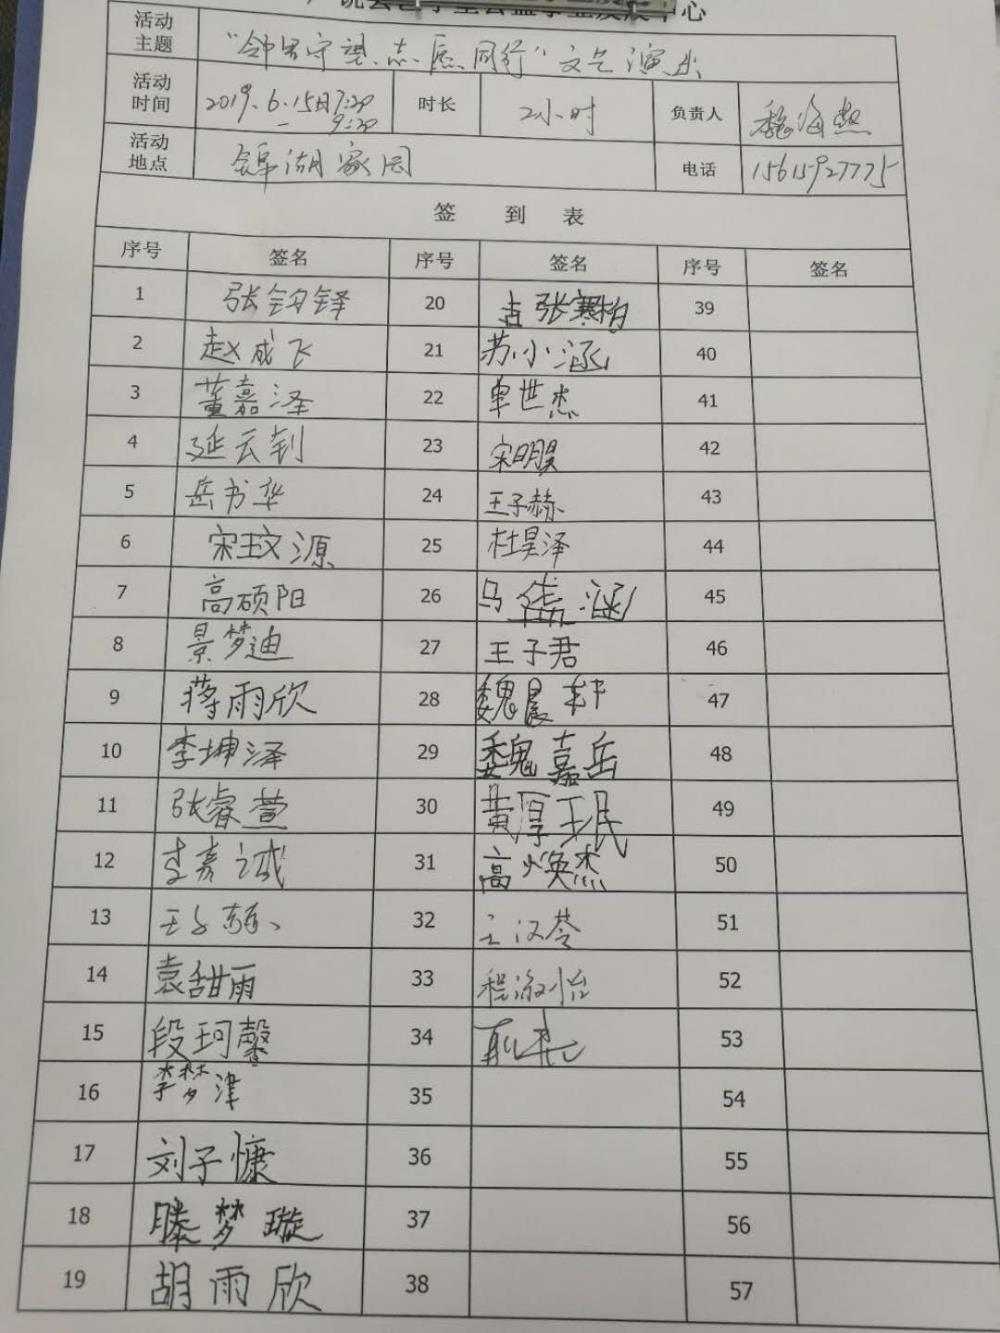 活动主题 "邻里守望、志愿同行"文艺演出
活动时间 2019.6.15日7:20-9:20 时长 2小时 负责人 魏海燕
活动地点 锦湖家园 电话 15615927775
签 到 表
序号 签名 序号 签名 序号 签名
1 张钧铎 20 张寒柏 39
2 赵成飞 21 苏小涵 40
3 董嘉泽 22 单世杰 41
4 延云钊 23 宋明昊 42
5 岳书华 24 王子赫 43
6 宋玟源 25 杜昊泽 44
7 高硕阳 26 马 涵 45
8 景梦迪 27 王子君 46
9 蒋雨欣 28 魏晨 47
10 李坤泽 29 魏嘉岳 48
11 张睿萱 30 黄厚珉 49
12 李嘉诚 31 高焕杰 50
13 王子 32 王汉苓 51
14 袁甜雨 33 程淑怡 52
15 段珂馨 34 53
16 李梦津 35 54
17 刘子慷 36 55
18 滕梦璇 37 56
19 胡雨欣 38 57